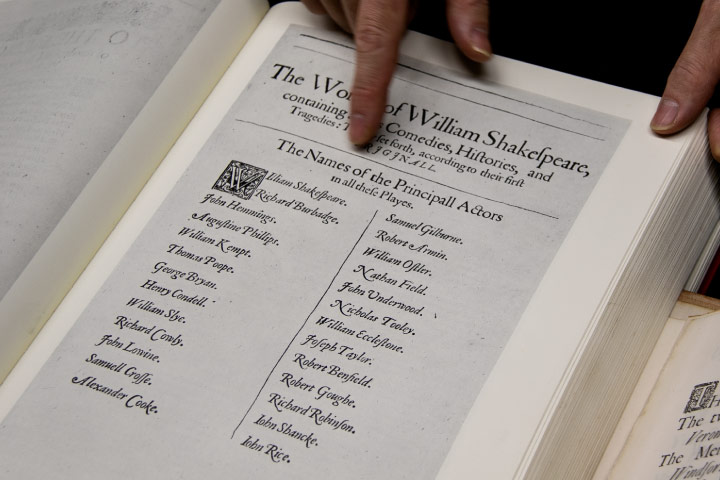 The of William Shakeſpeare,
containing Comedies, Hiſtories, and
Tragedies: ſet forth, according to their firſt
The Names of the Principall Actors
in all theſe Playes.
William Shakeſpeare.
Richard Burbadge.
John Hemmings.
Auguſtine Phillips.
William Kempt.
Thomas Poope.
George Bryan.
Henry Condell.
William Slye.
Richard Cowly.
John Lowine.
Samuell Croſſe.
Alexander Cooke.
Samuel Gilburne.
Robert Armin.
William Oſtler.
Nathan Field.
John Underwood.
Nicholas Tooley.
William Eccleſtone.
Joſeph Taylor.
Robert Benfield.
Robert Goughe.
Richard Robinſon.
Iohn Shancke.
Iohn Rice.
The
The